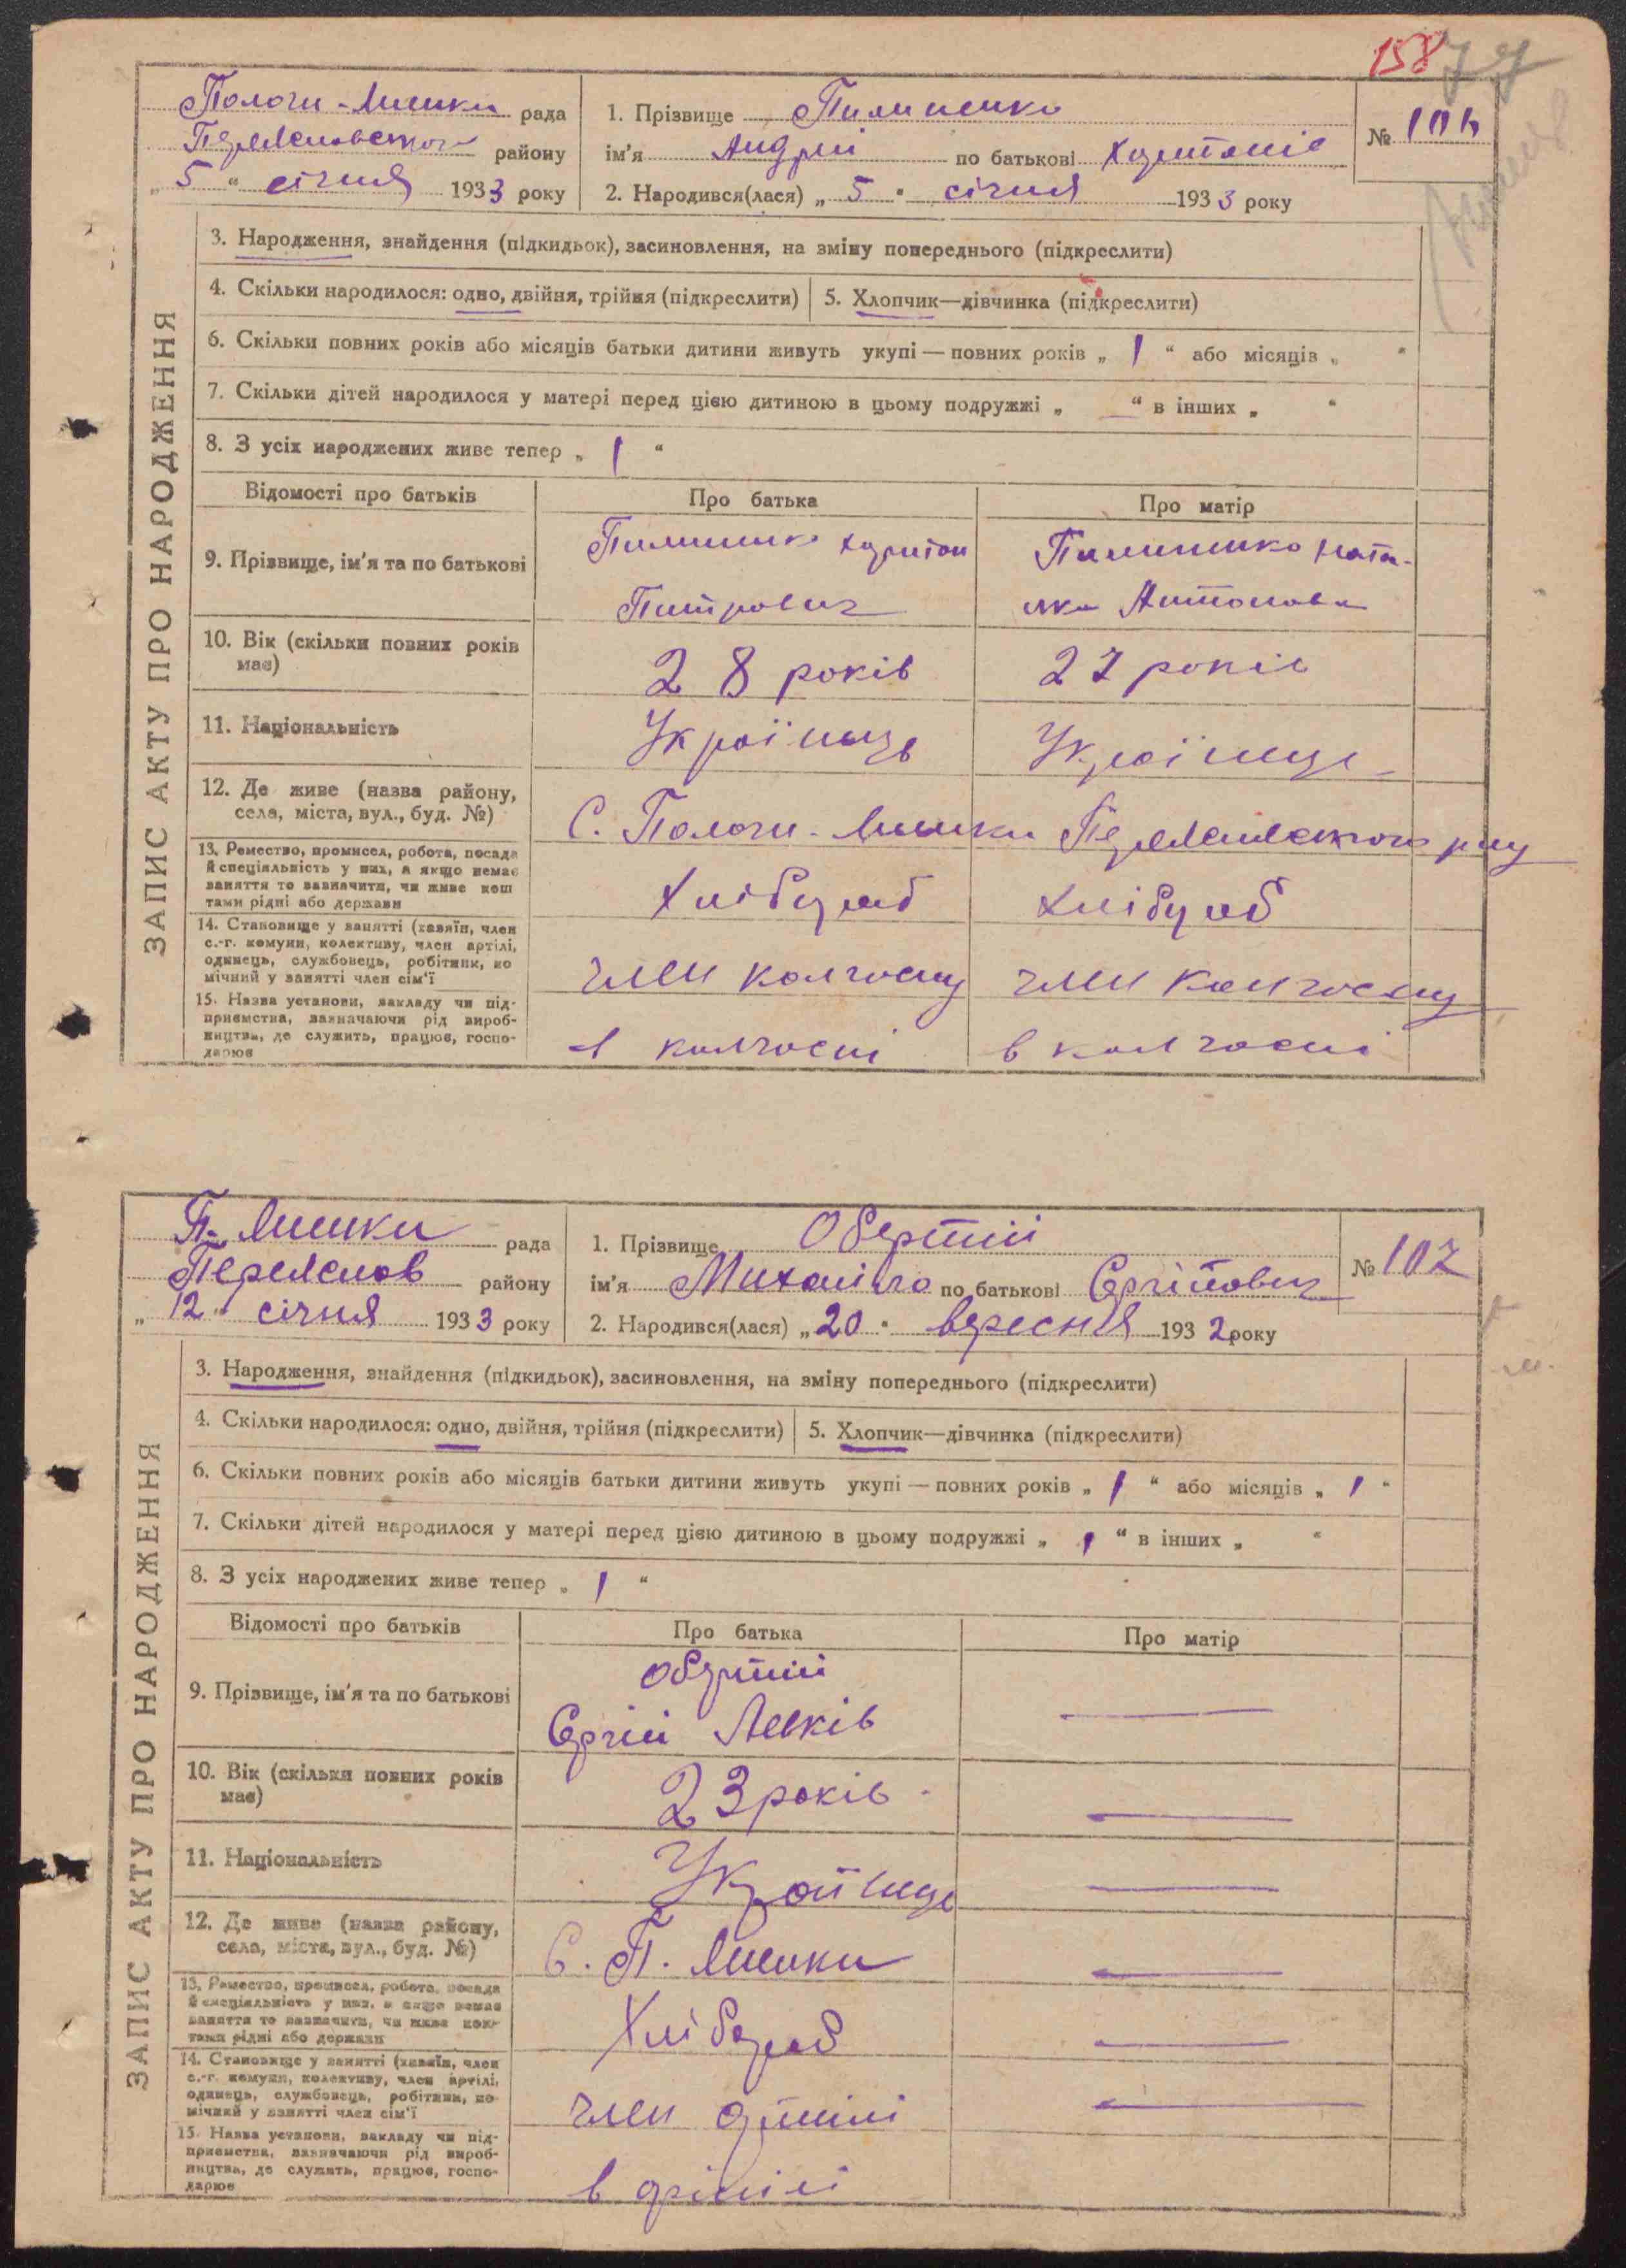 158
Пологи-Лишки рада
1. Прізвище Пилипенко
№ 106
району
ім'я Андрій по батькові
„ 5 " січня 1933 року
2. Народився(лася) „ 5 " січня 1933 року
ЗАПИС АКТУ ПРО НАРОДЖЕННЯ
3. Народження, знайдення (підкидьок), засиновлення, на зміну попереднього (підкреслити)
4. Скільки народилося: одно, двійня, трійня (підкреслити)
5. Хлопчик—дівчинка (підкреслити)
6. Скільки повних років або місяців батьки дитини живуть укупі — повних років „ 1 " або місяців „ "
7. Скільки дітей народилося у матері перед цією дитиною в цьому подружжі „ — " в інших „ "
8. З усіх народжених живе тепер „ 1 "
Відомості про батьків
Про батька
Про матір
9. Прізвище, ім'я та по батькові
Пилипенко Харитон
Петрович
Пилипенко Ната-
лка Антонова
10. Вік (скільки повних років
має)
28 років
27 років
11. Національність
Українець
12. Де живе (назва району,
села, міста, вул., буд. №)
С. Пологи-Лишки
13. Ремество, промисел, робота, посада
й спеціяльність у них, а якщо немає
заняття то зазначити, чи живе кош
тами рідні або держави
Хлібороб
Хлібороб
14. Становище у занятті (хазяїн, член
с.-г. комуни, колективу, член артілі,
одинець, службовець, робітник, по
мічний у занятті член сім'ї
член колгоспу
член колгоспу
15. Назва установи, закладу чи під-
приємства, зазначаючи рід вироб-
ництва, де служить, працює, госпо-
дарює
в колгоспі
в колгоспі
П. Лишки рада
1. Прізвище Обертій
№ 107
Переяслов району
ім'я Михайло по батькові Сергійович
„ 12 " січня 1933 року
2. Народився(лася) „ 20 " вересня 1932 року
ЗАПИС АКТУ ПРО НАРОДЖЕННЯ
3. Народження, знайдення (підкидьок), засиновлення, на зміну попереднього (підкреслити)
4. Скільки народилося: одно, двійня, трійня (підкреслити)
5. Хлопчик—дівчинка (підкреслити)
6. Скільки повних років або місяців батьки дитини живуть укупі — повних років „ 1 " або місяців „ 1 "
7. Скільки дітей народилося у матері перед цією дитиною в цьому подружжі „ 1 " в інших „ "
8. З усіх народжених живе тепер „ 1 "
Відомості про батьків
Про батька
Про матір
9. Прізвище, ім'я та по батькові
Обертій
Сергій Левків
—
10. Вік (скільки повних років
має)
23 років
—
11. Національність
Українець
—
12. Де живе (назва району,
села, міста, вул., буд. №)
С. П. Лишки
—
13. Ремество, промисел, робота, посада
й спеціяльність у них, а якщо немає
заняття то зазначити, чи живе кош-
тами рідні або держави
Хлібороб
—
14. Становище у занятті (хазяїн, член
с.-г. комуни, колективу, член артілі,
одинець, службовець, робітник, по
мічний у занятті член сім'ї
член артілі
—
15. Назва установи, закладу чи під-
приємства, зазначаючи рід вироб-
ництва, де служить, працює, госпо-
дарює
в артілі